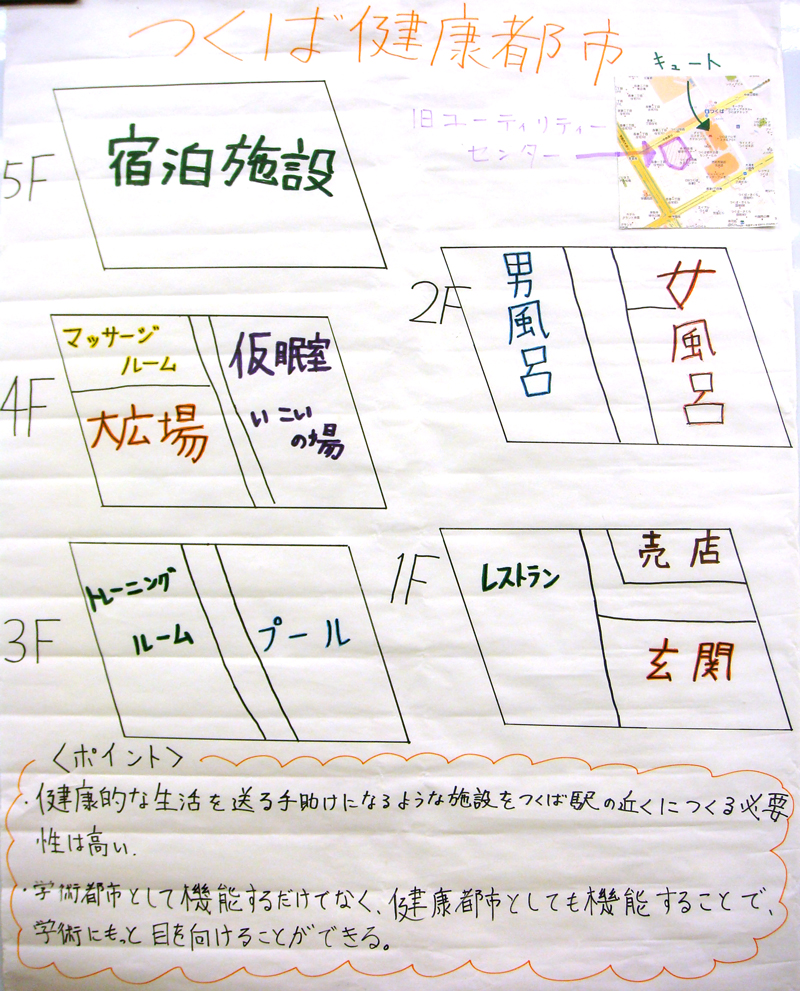 つくば健康都市
キュート
旧ユーティリティー
センター
5F
宿泊施設
4F
マッサージ
ルーム
大広場
仮眠室
いこい
の場
3F
トレーニング
ルーム
プール
2F
男風呂
女風呂
1F
レストラン
売店
玄関
〈ポイント〉
・健康的な生活を送る手助けになるような施設をつくば駅の近くにつくる必要
性は高い.
・学術都市として機能するだけでなく、健康都市としても機能することで、
学術にもっと目を向けることができる。